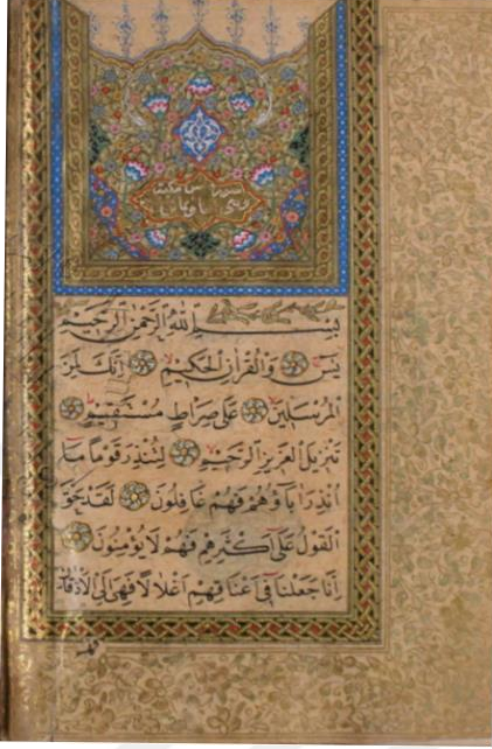 بِسْمِ اللّٰهِ الرَّحْمٰنِ الرَّحِيمِ
يٰسٓ وَالْقُرْاٰنِ الْحَكِيمِ اِنَّكَ لَمِنَ
الْمُرْسَلِينَ عَلٰى صِرَاطٍ مُسْتَقِيمٍ
تَنْزِيلَ الْعَزِيزِ الرَّحِيمِ لِتُنْذِرَ قَوْمًا مَا
اُنْذِرَ اٰبَاؤُهُمْ فَهُمْ غَافِلُونَ لَقَدْ حَقَّ
الْقَوْلُ عَلٰى اَكْثَرِهِمْ فَهُمْ لَا يُؤْمِنُونَ
اِنَّا جَعَلْنَا فِى اَعْنَاقِهِمْ اَغْلَالًا فَهِىَ اِلَى الْاَذْقَانِ
فهم